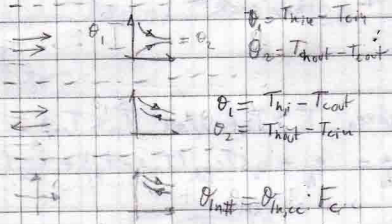 θ₁ = θ₂ θ₁ = Thin - Tcin
θ₂ = Thout - Tcout
θ₁ = Th,i - Tcout
θ₂ = Thout - Tcin
θln,cc · Fc